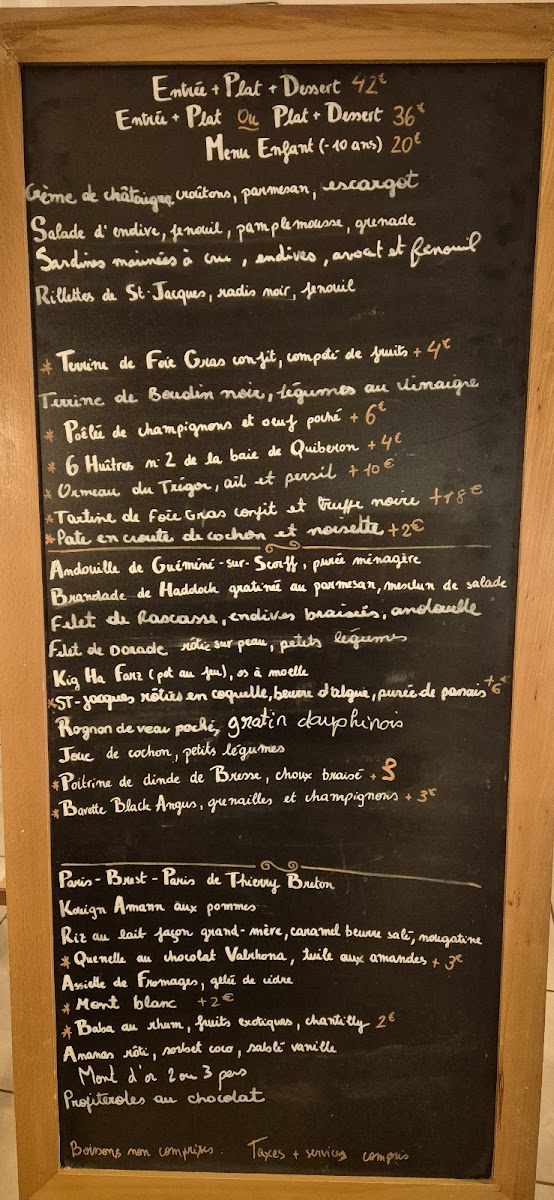 Entrée + Plat + Dessert 42€
Entrée + Plat Ou Plat + Dessert 36€
Menu Enfant (-10 ans) 20€
Crème de châtaigne croûtons, parmesan, escargot
Salade d'endive, fenouil, pamplemousse, grenade
Sardines marinées à cru, endives, avocat et fenouil
Rillettes de St-Jacques, radis noir, fenouil
* Terrine de Foie Gras confit, compoté de fruits + 4€
Terrine de Boudin noir, légumes au vinaigre
* Poêlée de champignons et oeuf poché + 6€
* 6 Huîtres n°2 de la baie de Quiberon + 4€
* Ormeau du Trégor, ail et persil + 10€
* Tartine de Foie Gras confit et truffe noire +18€
* Pate en croute de cochon et noisette +2€
Andouille de Guémené-sur-Scorff, purée ménagère
Brandade de Haddock gratinée au parmesan, mesclun de salade
Filet de Rascasse, endives braisées, andouille
Filet de Dorade rôtie sur peau, petits légumes
Kig Ha Farz (pot au feu), os à moelle
* ST-Jacques rôties en coquille, beurre d'algue, purée de panais +6€
Rognon de veau poché, gratin dauphinois
Joue de cochon, petits légumes
* Poitrine de dinde de Bresse, choux braisé + 3
* Bavette Black Angus, grenailles et champignons + 3€
Paris-Brest-Paris de Thierry Breton
Kouign Amann aux pommes
Riz au lait façon grand-mère, caramel beurre salé, nougatine
* Quenelle au chocolat Valrhona, tuile aux amandes + 3€
Assiette de Fromages, gelée de cidre
* Mont blanc +2€
* Baba au rhum, fruits exotiques, chantilly 2€
Ananas rôti, sorbet coco, sablé vanille
Mont d'or 2 ou 3 pers
Profiteroles au chocolat
Boissons non comprises. Taxes + services compris